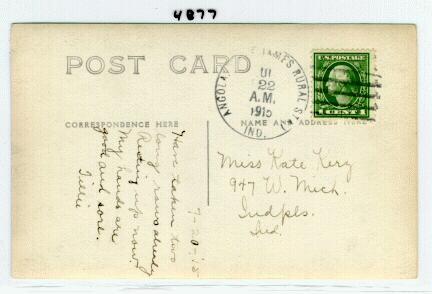 4877
POST CARD
ANGOLA JAMES RURAL STA.
22
A.M.
1915
IND.
U.S. POSTAGE
1 CENT 1
CORRESPONDENCE HERE
NAME AND ADDRESS HERE
7-20-'15
Have taken two
long rows already
Resting up now
My hands are
good and sore.
Tillie
Miss Kate
947 W. Mich.
Indpls.
Ind.